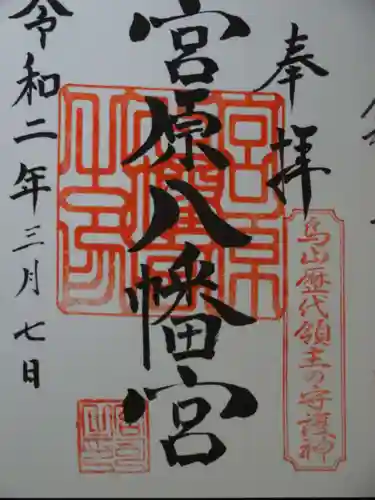 奉拝
烏山歴代領主の守護神
宮原八幡宮
令和二年三月七日